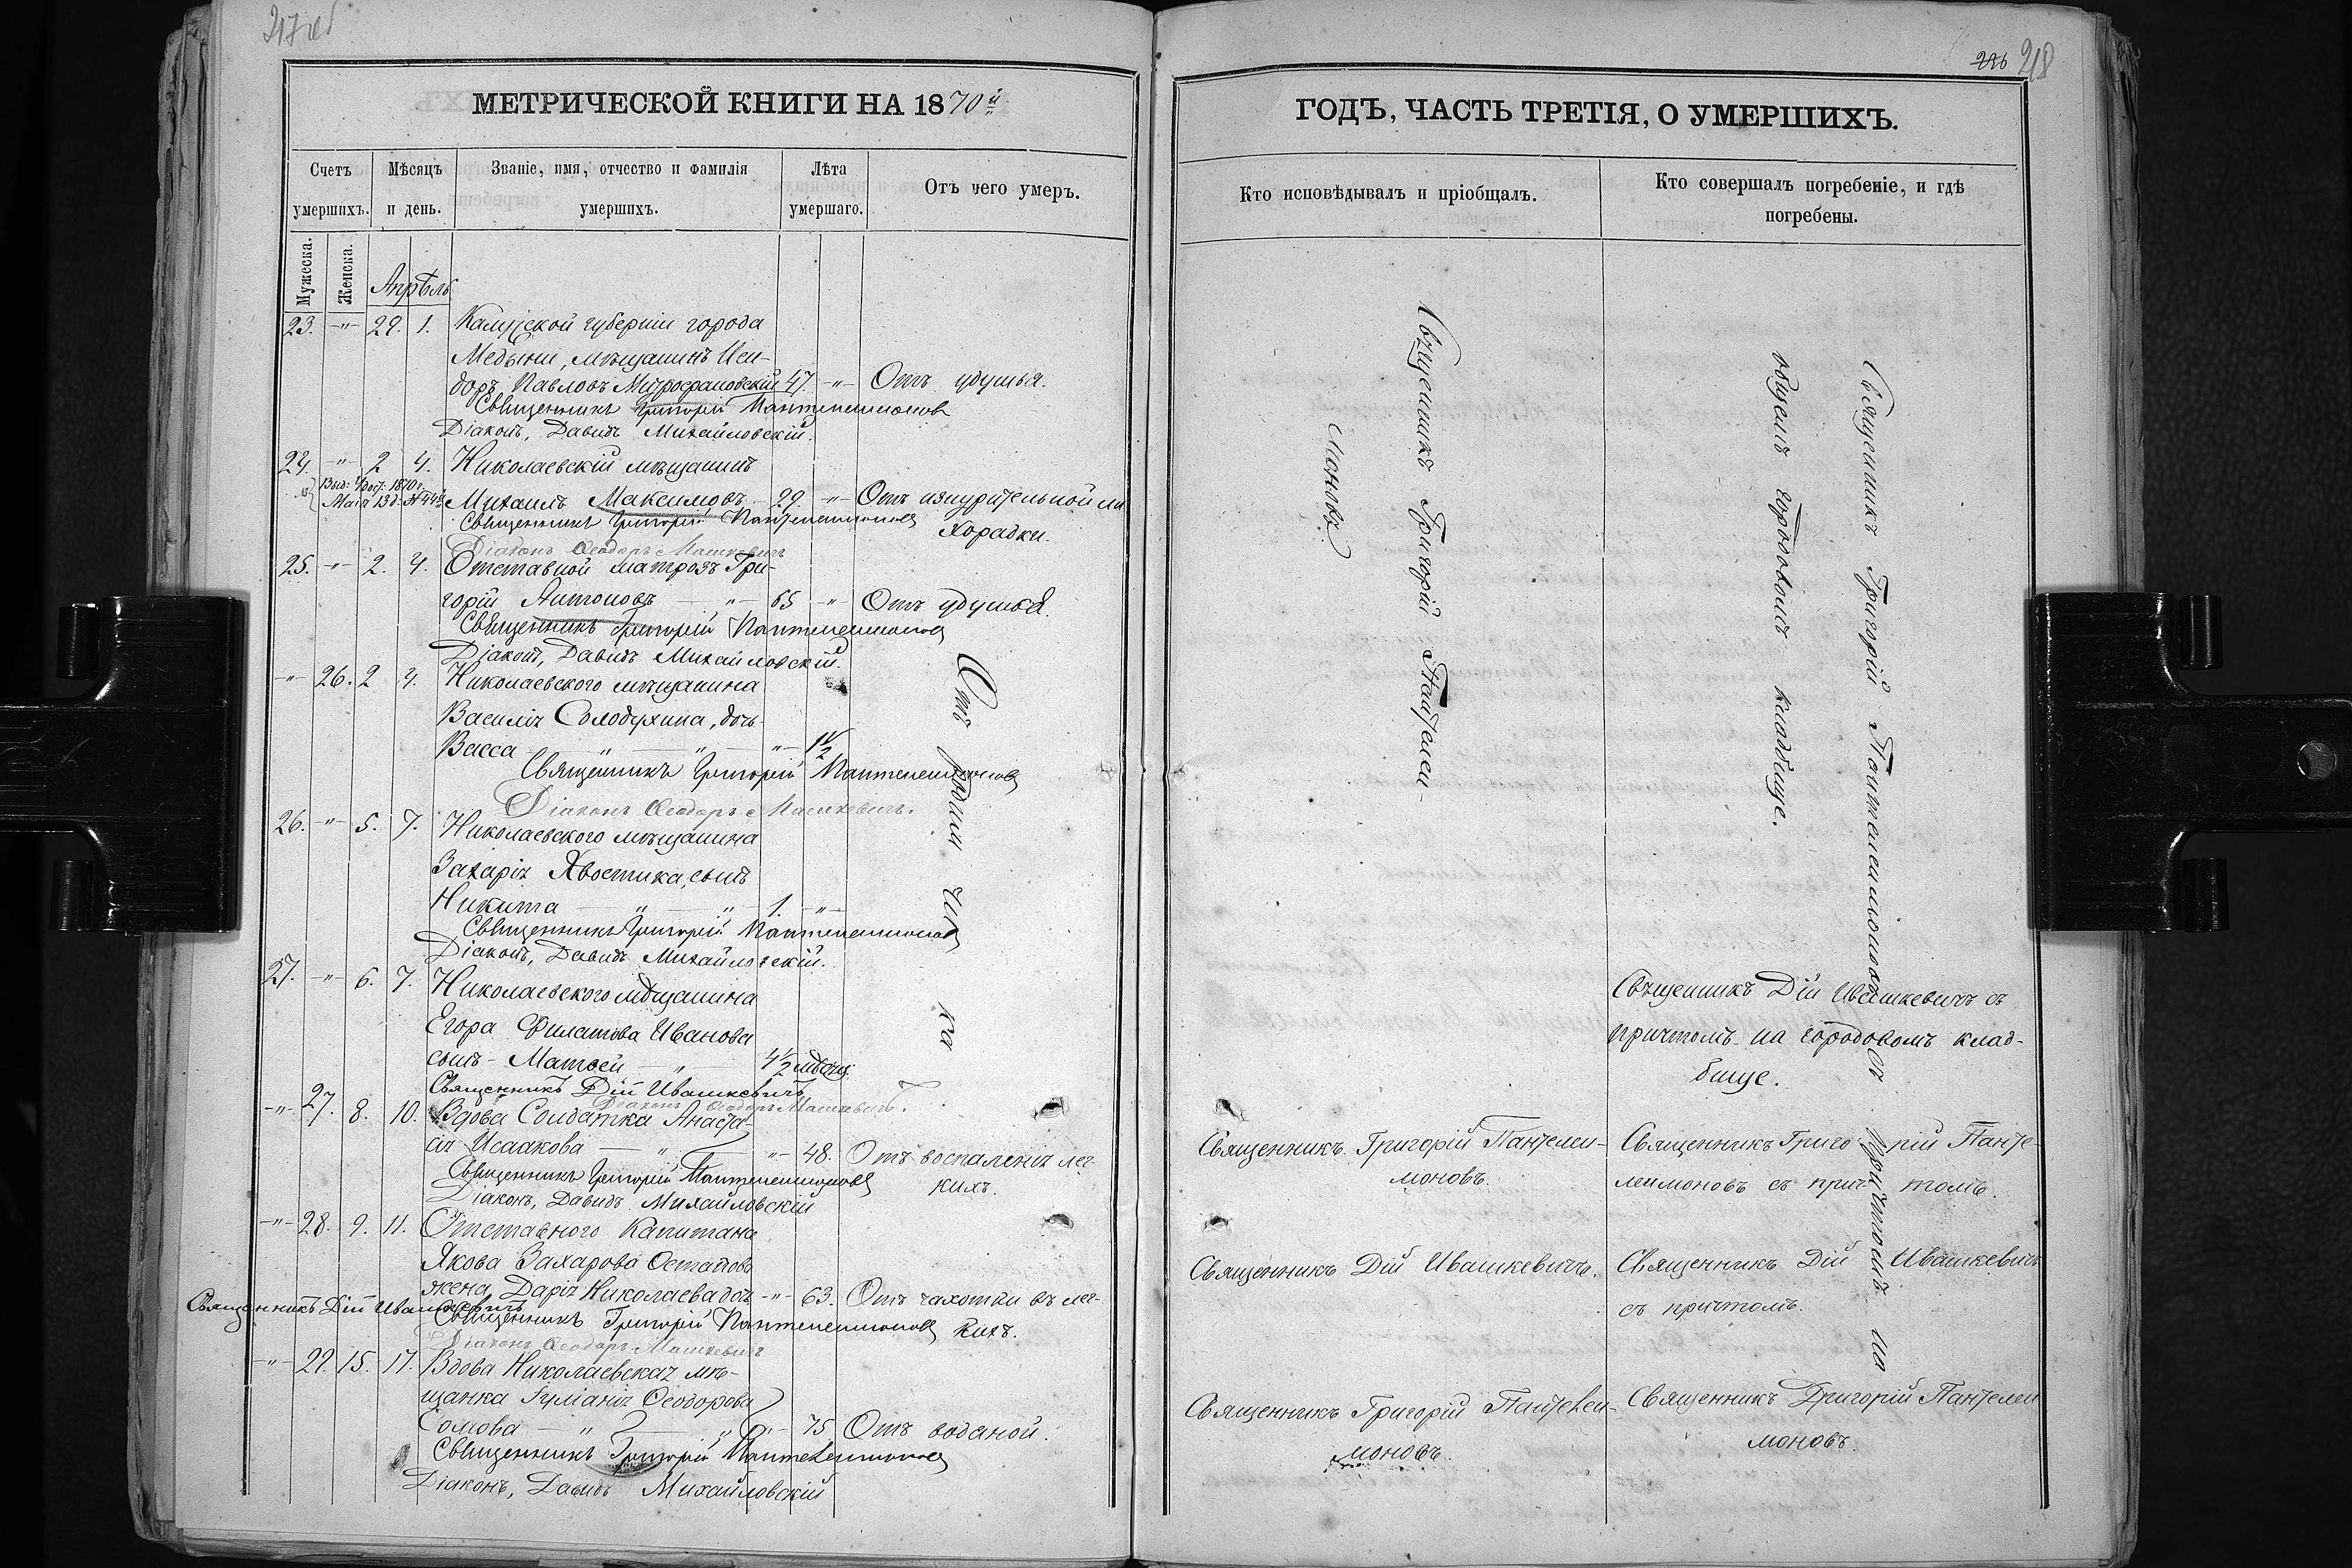 217 об
МЕТРИЧЕСКОЙ КНИГИ НА 1870й
Счетъ умершихъ.
Мѣсяцъ и день.
Званіе, имя, отчество и фамилія умершихъ.
Лѣта умершаго.
Отъ чего умеръ.
Мужеска.
Женска.
Апрѣль
23. -"- 29. 1. Калужской губерніи города
Медыни, мѣщанинъ Иси-
доръ Павловъ Митрофановскій 47 -"- Отъ удушья.
Священникъ Григорій Пантелеимоновъ
Діаконъ, Давидъ Михайловскій.
24. -"- 2 4. Николаевскій мѣщанинъ
Мая 13 д. № 44й
Михаилъ Максимовъ 29. -"- Отъ изнурительной ли
хорадки.
Священникъ Григорій Пантелеимоновъ
Діаконъ Ѳеодоръ Машкевичъ
25. -"- 2. 4. Отставной матрозъ Гри-
горій Антоновъ -"- 65 -"- Отъ удушья.
Священникъ Григорій Пантелеимоновъ
Діаконъ, Давидъ Михайловскій.
-"- 26. 2 4. Николаевского мѣщанина
Василія Солодухина, дочь
Васса -"- -"- -"- 1/2
Священникъ Григорій Пантелеимоновъ
Діаконъ Ѳеодоръ Машкевичъ.
26. -"- 5. 7. Николаевского мѣщанина
Захарія Хвостика, сынъ
Никита -"- -"- 1. -"-
Священникъ Григорій Пантелеимоновъ
Діаконъ, Давидъ Михайловскій.
27. -"- 6. 7. Николаевского мѣщанина
Егора Филатова Иванова
сынъ - Матвей -"- 4 1/2 мѣсяц.
Священникъ Дій Ивашкевичъ
Діаконъ Ѳеодоръ Машкевичъ.
Отъ родим чи ка
-"- 27. 8. 10. Вдова Солдатка Анаста-
сія Исаакова -"- -"- 48. Отъ воспаленія лег-
кихъ.
Священникъ Григорій Пантелеимоновъ
Діаконъ, Давидъ Михайловскій
-"- 28. 9. 11. Отставного Капитана
Якова Захарова
жена Дарія Николаева -"- 63. Отъ чахотки въ лег-
кихъ.
Священникъ Дій Ивашкевичъ
Священникъ Григорій Пантелеимоновъ
Діаконъ Ѳеодоръ Машкевичъ
-"- 29. 15. 17. Вдова Николаевская мѣ-
щанка Іуліанія Ѳеодорова
Сомова -"- -"- -"- 75 Отъ водяной.
Священникъ Григорій Пантелеимоновъ
Діаконъ, Давидъ Михайловскій
226 218
ГОДЪ, ЧАСТЬ ТРЕТІЯ, О УМЕРШИХЪ.
Кто исповѣдывалъ и пріобщалъ.
Кто совершалъ погребеніе, и гдѣ погребены.
Священникъ Григорій Пантелеи-
моновъ
Священникъ Григорій Пантелеимоновъ съ причтомъ на
общемъ городовомъ кладбище.
Священникъ Дій Ивашкевичъ съ
причтомъ на городовомъ клад-
бище.
Священникъ Григорій Пантелеи-
моновъ.
Священникъ Григорій Панте-
леимоновъ съ причтомъ.
Священникъ Дій Ивашкевичъ.
Священникъ Дій Ивашкевичъ
съ причтомъ.
Священникъ Григорій Пантелеи-
моновъ.
Священникъ Григорій Пантелеи
моновъ.